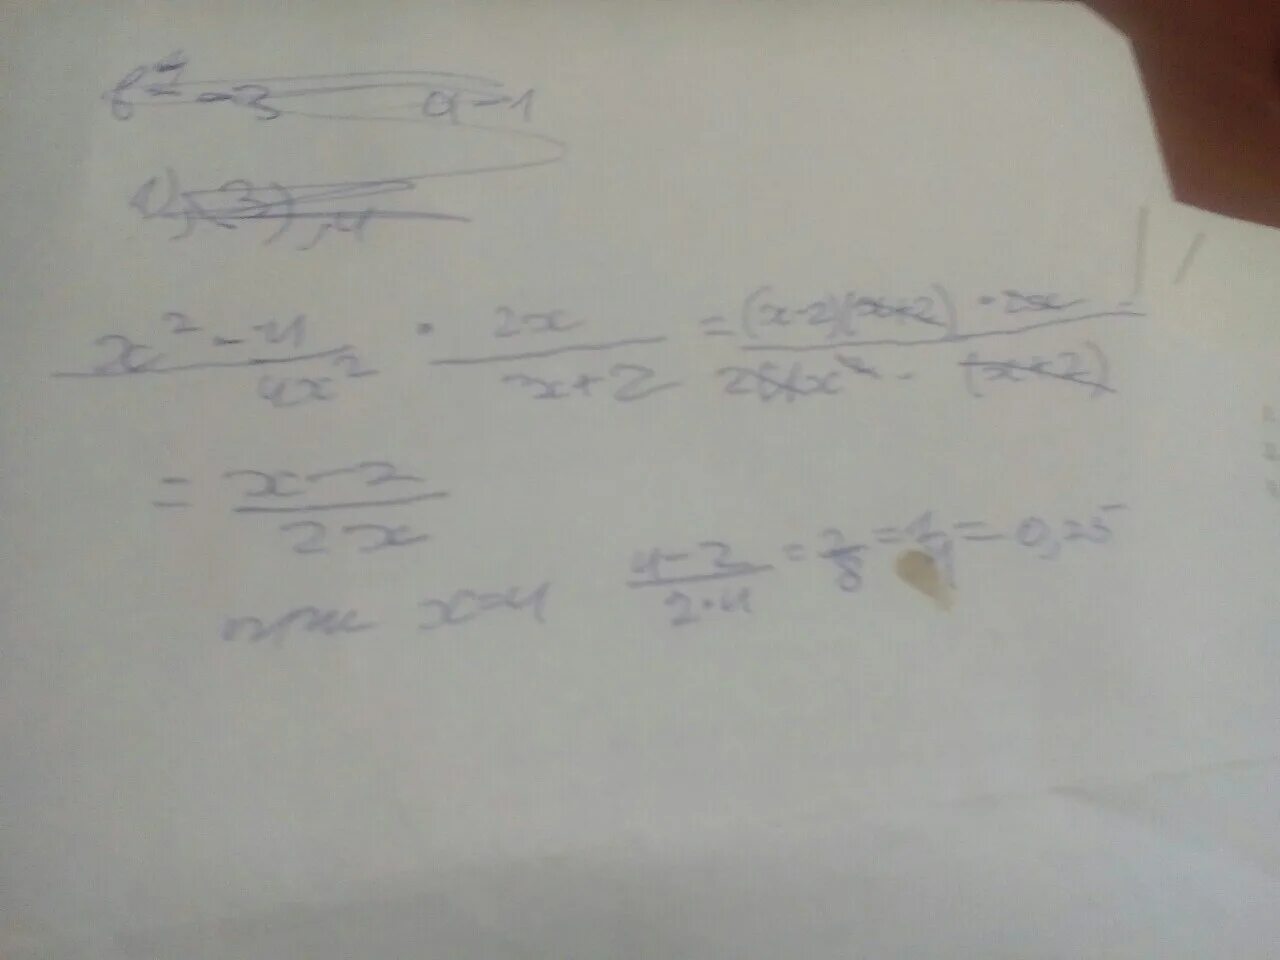 a-1
x² - 4 / 4x² · 2x / x+2 = (x-2)(x+2) · 2x / 4x² · (x+2) =
= x-2 / 2x
при x=4 4-2 / 2·4 = 2/8 = 1/4 = 0,25